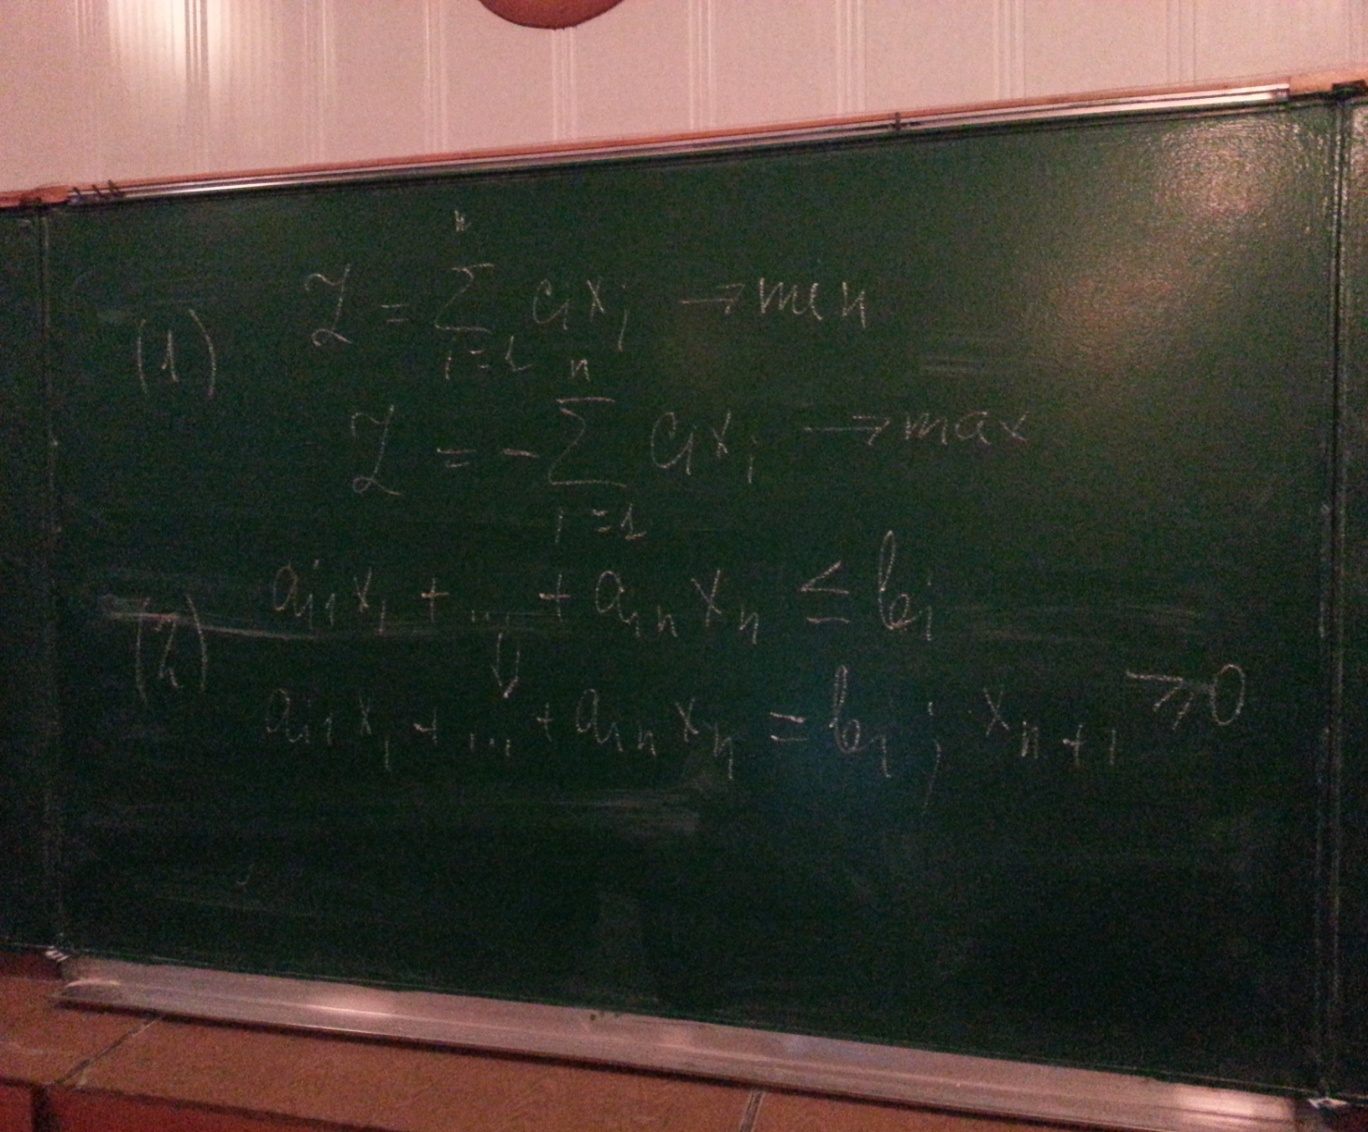 (1) Z = n Σ i=1 cᵢxᵢ → min
Z = - n Σ i=1 cᵢxᵢ → max
(2) aᵢ₁x₁ + ... + aᵢₙxₙ ≤ bᵢ
↓
aᵢ₁x₁ + ... + aᵢₙxₙ = bᵢ ; xₙ₊₁ ≥ 0